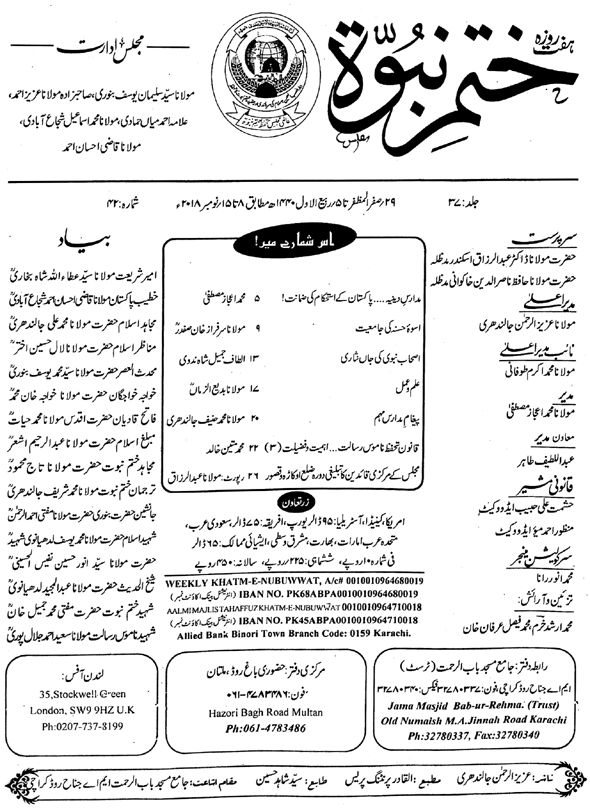 ہفت روزہ
ختم نبوّة
مجلس ادارت
مولانا سیّد سلیمان یوسف بنوری، صاحبزادہ مولانا عزیز احمد،
علامہ احمد میاں حمادی، مولانا محمد اسماعیل شجاع آبادی،
مولانا قاضی احسان احمد
جلد:۳۷
۲۹؍صفر المظفر تا ۵؍ربیع الاول ۱۴۴۰ھ مطابق ۸ تا ۱۵؍نومبر ۲۰۱۸ء
شمارہ:۴۲
سرپرست
حضرت مولانا ڈاکٹر عبدالرزاق اسکندر مدظلہ
حضرت مولانا حافظ ناصر الدین خاکوانی مدظلہ
مدیر اعلیٰ
مولانا عزیز الرحمٰن جالندھری
نائب مدیر اعلیٰ
مولانا محمد اکرم طوفانی
مدیر
مولانا محمد اعجاز مصطفیٰ
معاون مدیر
عبداللطیف طاہر
قانونی مشیر
حشمت علی حبیب ایڈووکیٹ
منظور احمد میؤ ایڈووکیٹ
سرکولیشن منیجر
محمد انور رانا
تزئین و آرائش:
محمد ارشد خرم، محمد فیصل عرفان خان
اس شمارے میں!
مدارس دینیہ.... پاکستان کے استحکام کی ضمانت! ۵ محمد اعجاز مصطفیٰ
اسوۂ حسنہ کی جامعیت ۹ مولانا سرفراز خان صفدرؒ
اصحاب نبوی کی جاں نثاری ۱۳ الطاف جمیل شاہ ندوی
علم و عمل ۱۷ مولانا بدیع الزماںؒ
پیغام مدارس مہم ۲۰ مولانا محمد حنیف جالندھری
قانون تحفظ ناموس رسالت... اہمیت و فضیلت (۳) ۲۲ محمد متین خالد
مجلس کے مرکزی قائدین کا تبلیغی دورہ ضلع اوکاڑہ و قصور ۲۶ رپورٹ: مولانا عبدالرزاق
زرتعاون
امریکا، کینیڈا، آسٹریلیا: ۹۵ ڈالر یورپ، افریقہ: ۷۵ ڈالر، سعودی عرب،
متحدہ عرب امارات، بھارت، مشرق وسطیٰ، ایشیائی ممالک: ۶۵ ڈالر
فی شمارہ ۱۰ روپے، ششماہی: ۲۲۵ روپے، سالانہ: ۴۵۰ روپے
WEEKLY KHATM-E-NUBUWWAT, A/c# 0010010964680019
IBAN NO. PK68ABPA0010010964680019 (انٹرنیشنل بینک اکاؤنٹ نمبر)
AALMI MAJLIS TAHAFFUZ KHATM-E-NUBUWWAT 0010010964710018
IBAN NO. PK45ABPA0010010964710018 (انٹرنیشنل بینک اکاؤنٹ نمبر)
Allied Bank Binori Town Branch Code: 0159 Karachi.
بیاد
امیر شریعت مولانا سیّد عطاء اللہ شاہ بخاریؒ
خطیب پاکستان مولانا قاضی احسان احمد شجاع آبادیؒ
مجاہد اسلام حضرت مولانا محمد علی جالندھریؒ
مناظر اسلام حضرت مولانا لال حسین اخترؒ
محدث العصر حضرت مولانا سیّد محمد یوسف بنوریؒ
خواجہ خواجگان حضرت مولانا خواجہ خان محمدؒ
فاتح قادیان حضرت اقدس مولانا محمد حیاتؒ
مبلغ اسلام حضرت مولانا عبدالرحیم اشعرؒ
مجاہد ختم نبوت حضرت مولانا تاج محمودؒ
ترجمان ختم نبوت مولانا محمد شریف جالندھریؒ
جانشین حضرت بنوری حضرت مولانا مفتی احمد الرحمٰنؒ
شہید اسلام حضرت مولانا محمد یوسف لدھیانوی شہیدؒ
حضرت مولانا سیّد انور حسین نفیس الحسینیؒ
شیخ الحدیث حضرت مولانا عبدالمجید لدھیانویؒ
شہید ختم نبوت حضرت مفتی محمد جمیل خانؒ
شہید ناموس رسالت مولانا سعید احمد جلال پوریؒ
رابطہ دفتر: جامع مسجد باب الرحمت (ٹرسٹ)
ایم اے جناح روڈ کراچی، فون: ۳۲۷۸۰۳۳۷ فیکس: ۳۲۷۸۰۳۴۰
Jama Masjid Bab-ur-Rehma. (Trust)
Old Numaish M.A.Jinnah Road Karachi
Ph:32780337, Fax:32780340
مرکزی دفتر: حضوری باغ روڈ، ملتان
فون: ۰۶۱-۴۷۸۳۴۸۶
Hazori Bagh Road Multan
Ph:061-4783486
لندن آفس:
35,Stockwell Green
London, SW9 9HZ U.K
Ph:0207-737-8199
ناشر: عزیز الرحمٰن جالندھری مطبع: القادر پرنٹنگ پریس طابع: سیّد شاہد حسین مقام اشاعت: جامع مسجد باب الرحمت ایم اے جناح روڈ کراچی